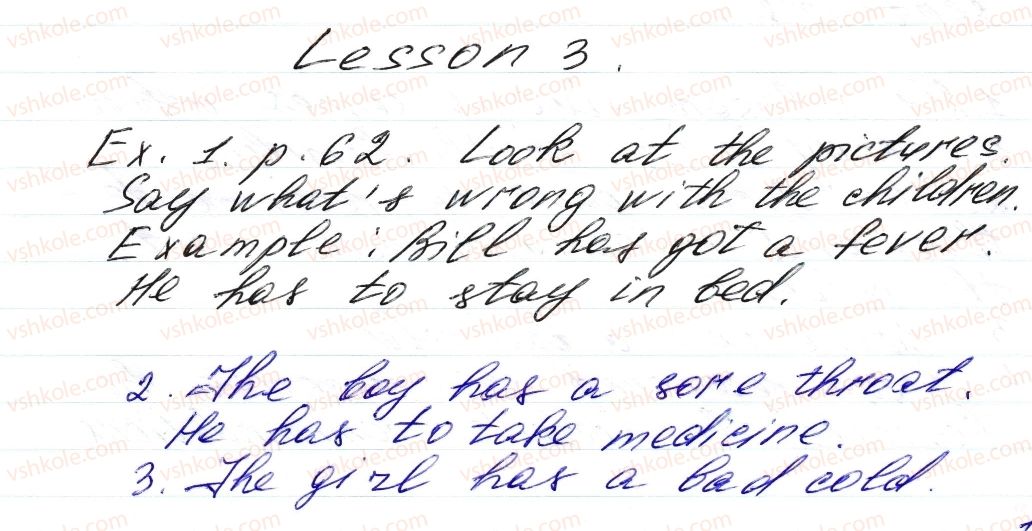 Lesson 3.
Ex. 1. p. 62. Look at the pictures.
Say what's wrong with the children.
Example: Bill has got a fever.
He has to stay in bed.
2. The boy has a sore throat.
He has to take medicine.
3. The girl has a bad cold.